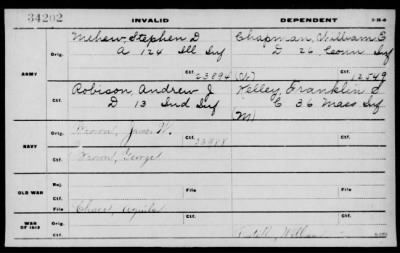 34202 INVALID DEPENDENT
Mehew, Stephen D Chapman, William S
Orig. A 124 Ill Inf D 26 Conn Inf
ARMY 23894 (W) 12549
Robison, Andrew J Kelley, Franklin S
Ctf. D 13 Ind Inf E 36 Mass Inf
(M)
Orig. Brown, James W. Ctf.
NAVY 23988
Ctf. Brown, George
Rej.
OLD WAR File File
Ctf.
Chase, Aquila
WAR OF 1812 Orig. Ctf.
Ctf.